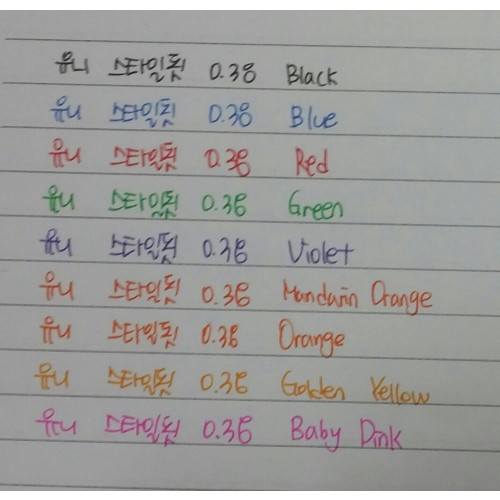 유니 스타일핏 0.38 Black
유니 스타일핏 0.38 Blue
유니 스타일핏 0.38 Red
유니 스타일핏 0.38 Green
유니 스타일핏 0.38 Violet
유니 스타일핏 0.38 Mandarin Orange
유니 스타일핏 0.38 Orange
유니 스타일핏 0.38 Golden Yellow
유니 스타일핏 0.38 Baby Pink